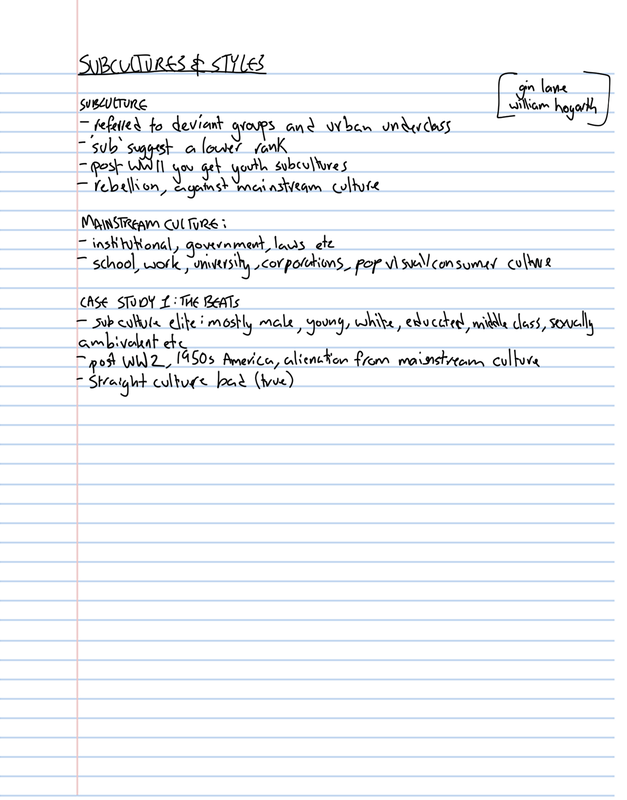 SUBCULTURES & STYLES
[gin lane
william hogarth]
SUBCULTURE
- referred to deviant groups and urban underclass
- 'sub' suggest a lower rank
- post WWII you get youth subcultures
- rebellion, against mainstream culture
MAINSTREAM CULTURE:
- institutional, government, laws etc
- school, work, university, corporations, pop visual/consumer culture
CASE STUDY 1: THE BEATS
- subculture elite: mostly male, young, white, educated, middle class, sexually
ambivalent etc
- post WW2, 1950s America, alienation from mainstream culture
- Straight culture bad (true)